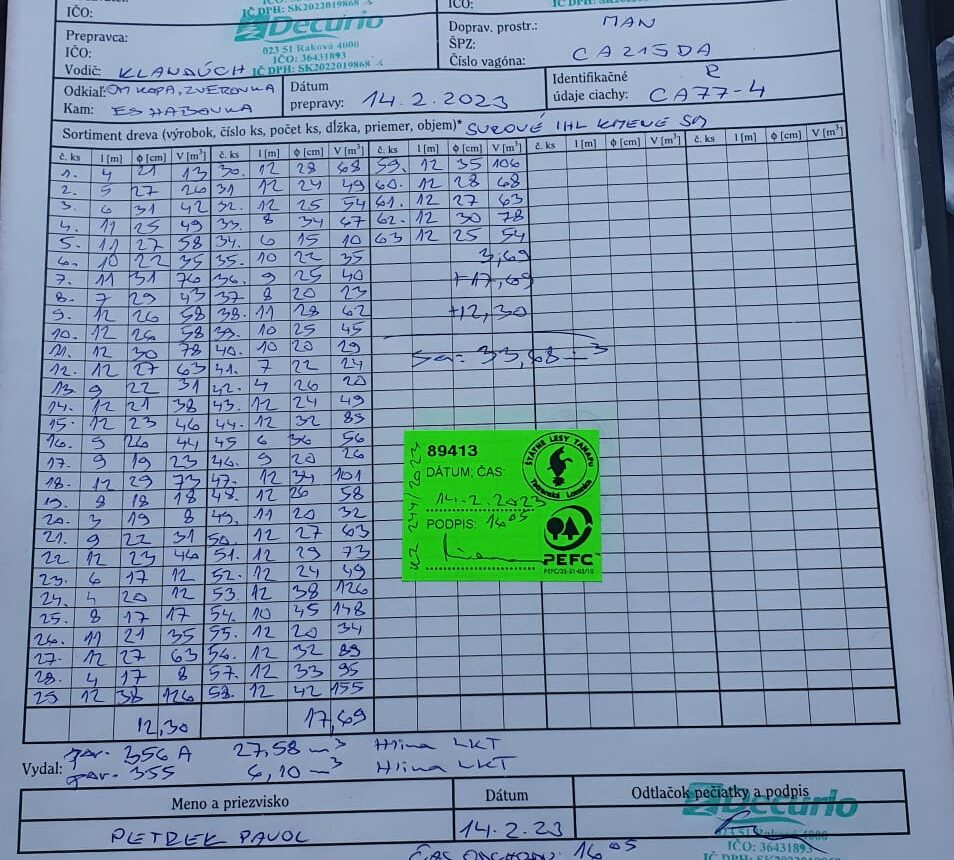 IČO:
IČ DPH: SK2022019868
IČO:
IČ DPH: SK2022019868
Prepravca:
Decurio
023 51 Raková 4000
IČO:
IČO: 36431893
Vodič: KLANDÚCH IČ DPH: SK2022019868
Doprav. prostr.: MAN
ŠPZ: CA215DA
Číslo vagóna:
Odkiaľ: OM KOPA, ZVEROVKA
Kam: ES HABOVKA
Dátum
prepravy: 14.2.2023
Identifikačné R
údaje ciachy: CA77-4
Sortiment dreva (výrobok, číslo ks, počet ks, dĺžka, priemer, objem)* SUROVÉ IHL KMENE SM
č. ks l [m] φ [cm] V [m³] č. ks l [m] φ [cm] V [m³] č. ks l [m] φ [cm] V [m³] č. ks l [m] φ [cm] V [m³] č. ks l [m] φ [cm] V [m³]
1. 4 21 13 30. 12 28 68 59. 12 35 106
2. 5 27 26 31 12 24 49 60. 12 28 68
3. 6 31 42 32. 12 25 54 61. 12 27 63
4. 11 25 49 33. 8 34 67 62. 12 30 78
5. 11 27 58 34. 6 15 10 63 12 25 54
6. 10 22 35 35. 10 22 35 3,69
7. 11 31 76 36. 9 25 40 +17,69
8. 7 29 43 37 8 20 23
9. 12 26 58 38. 11 28 62 +12,30
10. 12 26 58 39. 10 25 45
11. 12 30 78 40. 10 20 29 Sa = 33,68 m³
12. 12 27 63 41. 7 22 24
13. 9 22 31 42. 4 26 20
14. 12 21 38 43. 12 24 49
15. 12 23 46 44. 12 32 89
16. 9 26 44 45 6 36 56
17. 9 19 23 46. 9 20 26
18. 12 29 73 47. 12 34 101
19. 8 18 18 48. 12 26 58
20. 3 19 8 49. 11 20 32
21. 9 22 31 50. 12 27 63
22 12 23 46 51. 12 29 73
23. 6 17 12 52. 12 24 49
24. 4 20 12 53. 12 38 126
25. 8 17 17 54. 10 45 148
26. 11 21 35 55. 12 20 34
27. 12 27 63 56. 12 32 89
28. 4 17 8 57. 12 33 95
29 12 38 126 58. 12 42 155
12,30 17,69
89413
DÁTUM; ČAS:
14.2.2023
PODPIS: 16⁰⁵
ŠTÁTNE LESY TANAPU
Tatranská Lomnica
PEFC
PEFC/23-21-03/10
Vydal:
par. 356 A 27,58 m³ Hlina LKT
par. 355 6,10 m³ Hlina LKT
Meno a priezvisko Dátum Odtlačok pečiatky a podpis
Decurio
PETREK PAVOL 14.2.23
023 51 Raková 4000
IČO: 36431893
ČAS ODCHODU: 16⁰⁵